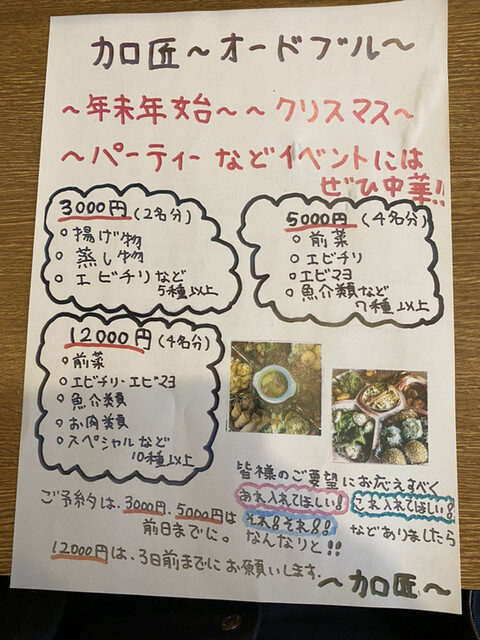 加口匠〜オードブル〜
〜年末年始〜〜クリスマス〜
〜パーティーなどイベントには
ぜひ中華!!
3000円(2名分)
○揚げ物
○蒸し物
○エビチリなど
5種以上
5000円(4名分)
○前菜
○エビチリ
○エビマヨ
○魚介類など
7種以上
12000円(4名分)
○前菜
○エビチリ・エビマヨ
○魚介類
○お肉類
○スペシャルなど
10種以上
皆様のご要望にお応えすべく
あれ入れてほしい! これ入れてほしい!
それ!それ!! などありましたら
なんなりと!!
ご予約は、3000円、5000円は
前日までに。
12000円は、3日前までにお願いします。
〜加口匠〜